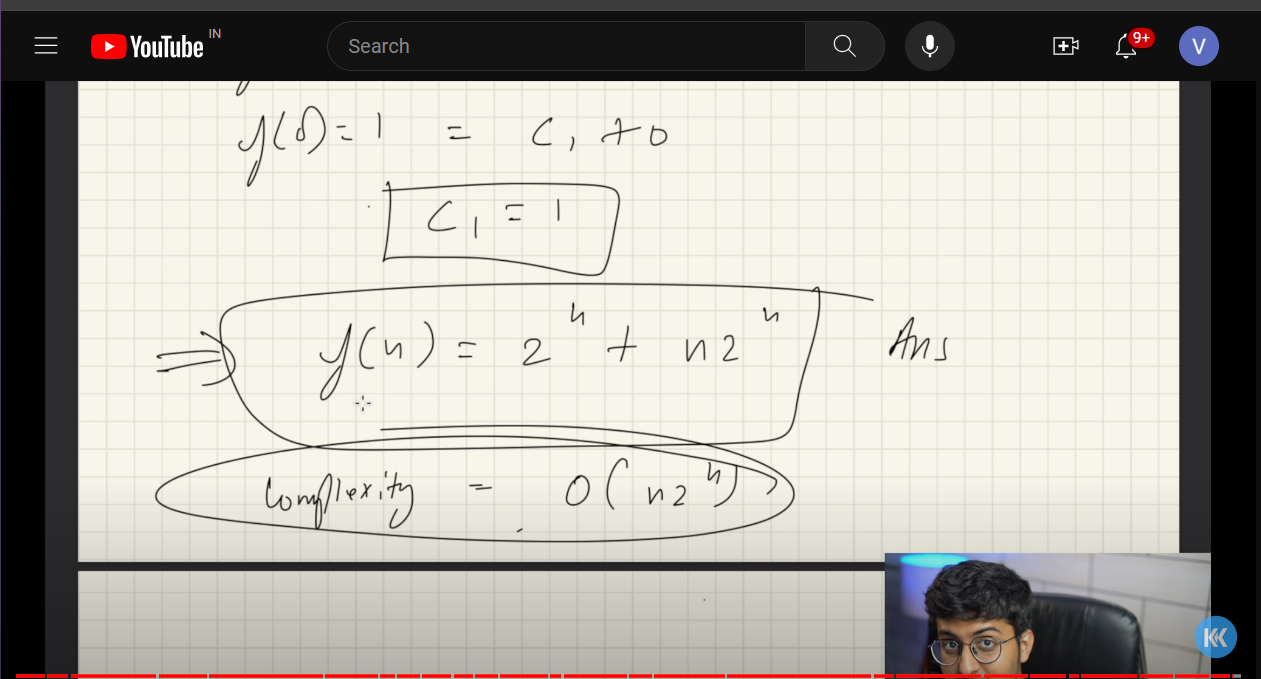 YouTube IN
Search
9+
V
y(0) = 1 = C₁ + 0
C₁ = 1
⇒ y(n) = 2ⁿ + n2ⁿ Ans
Complexity = O(n2ⁿ)
KK